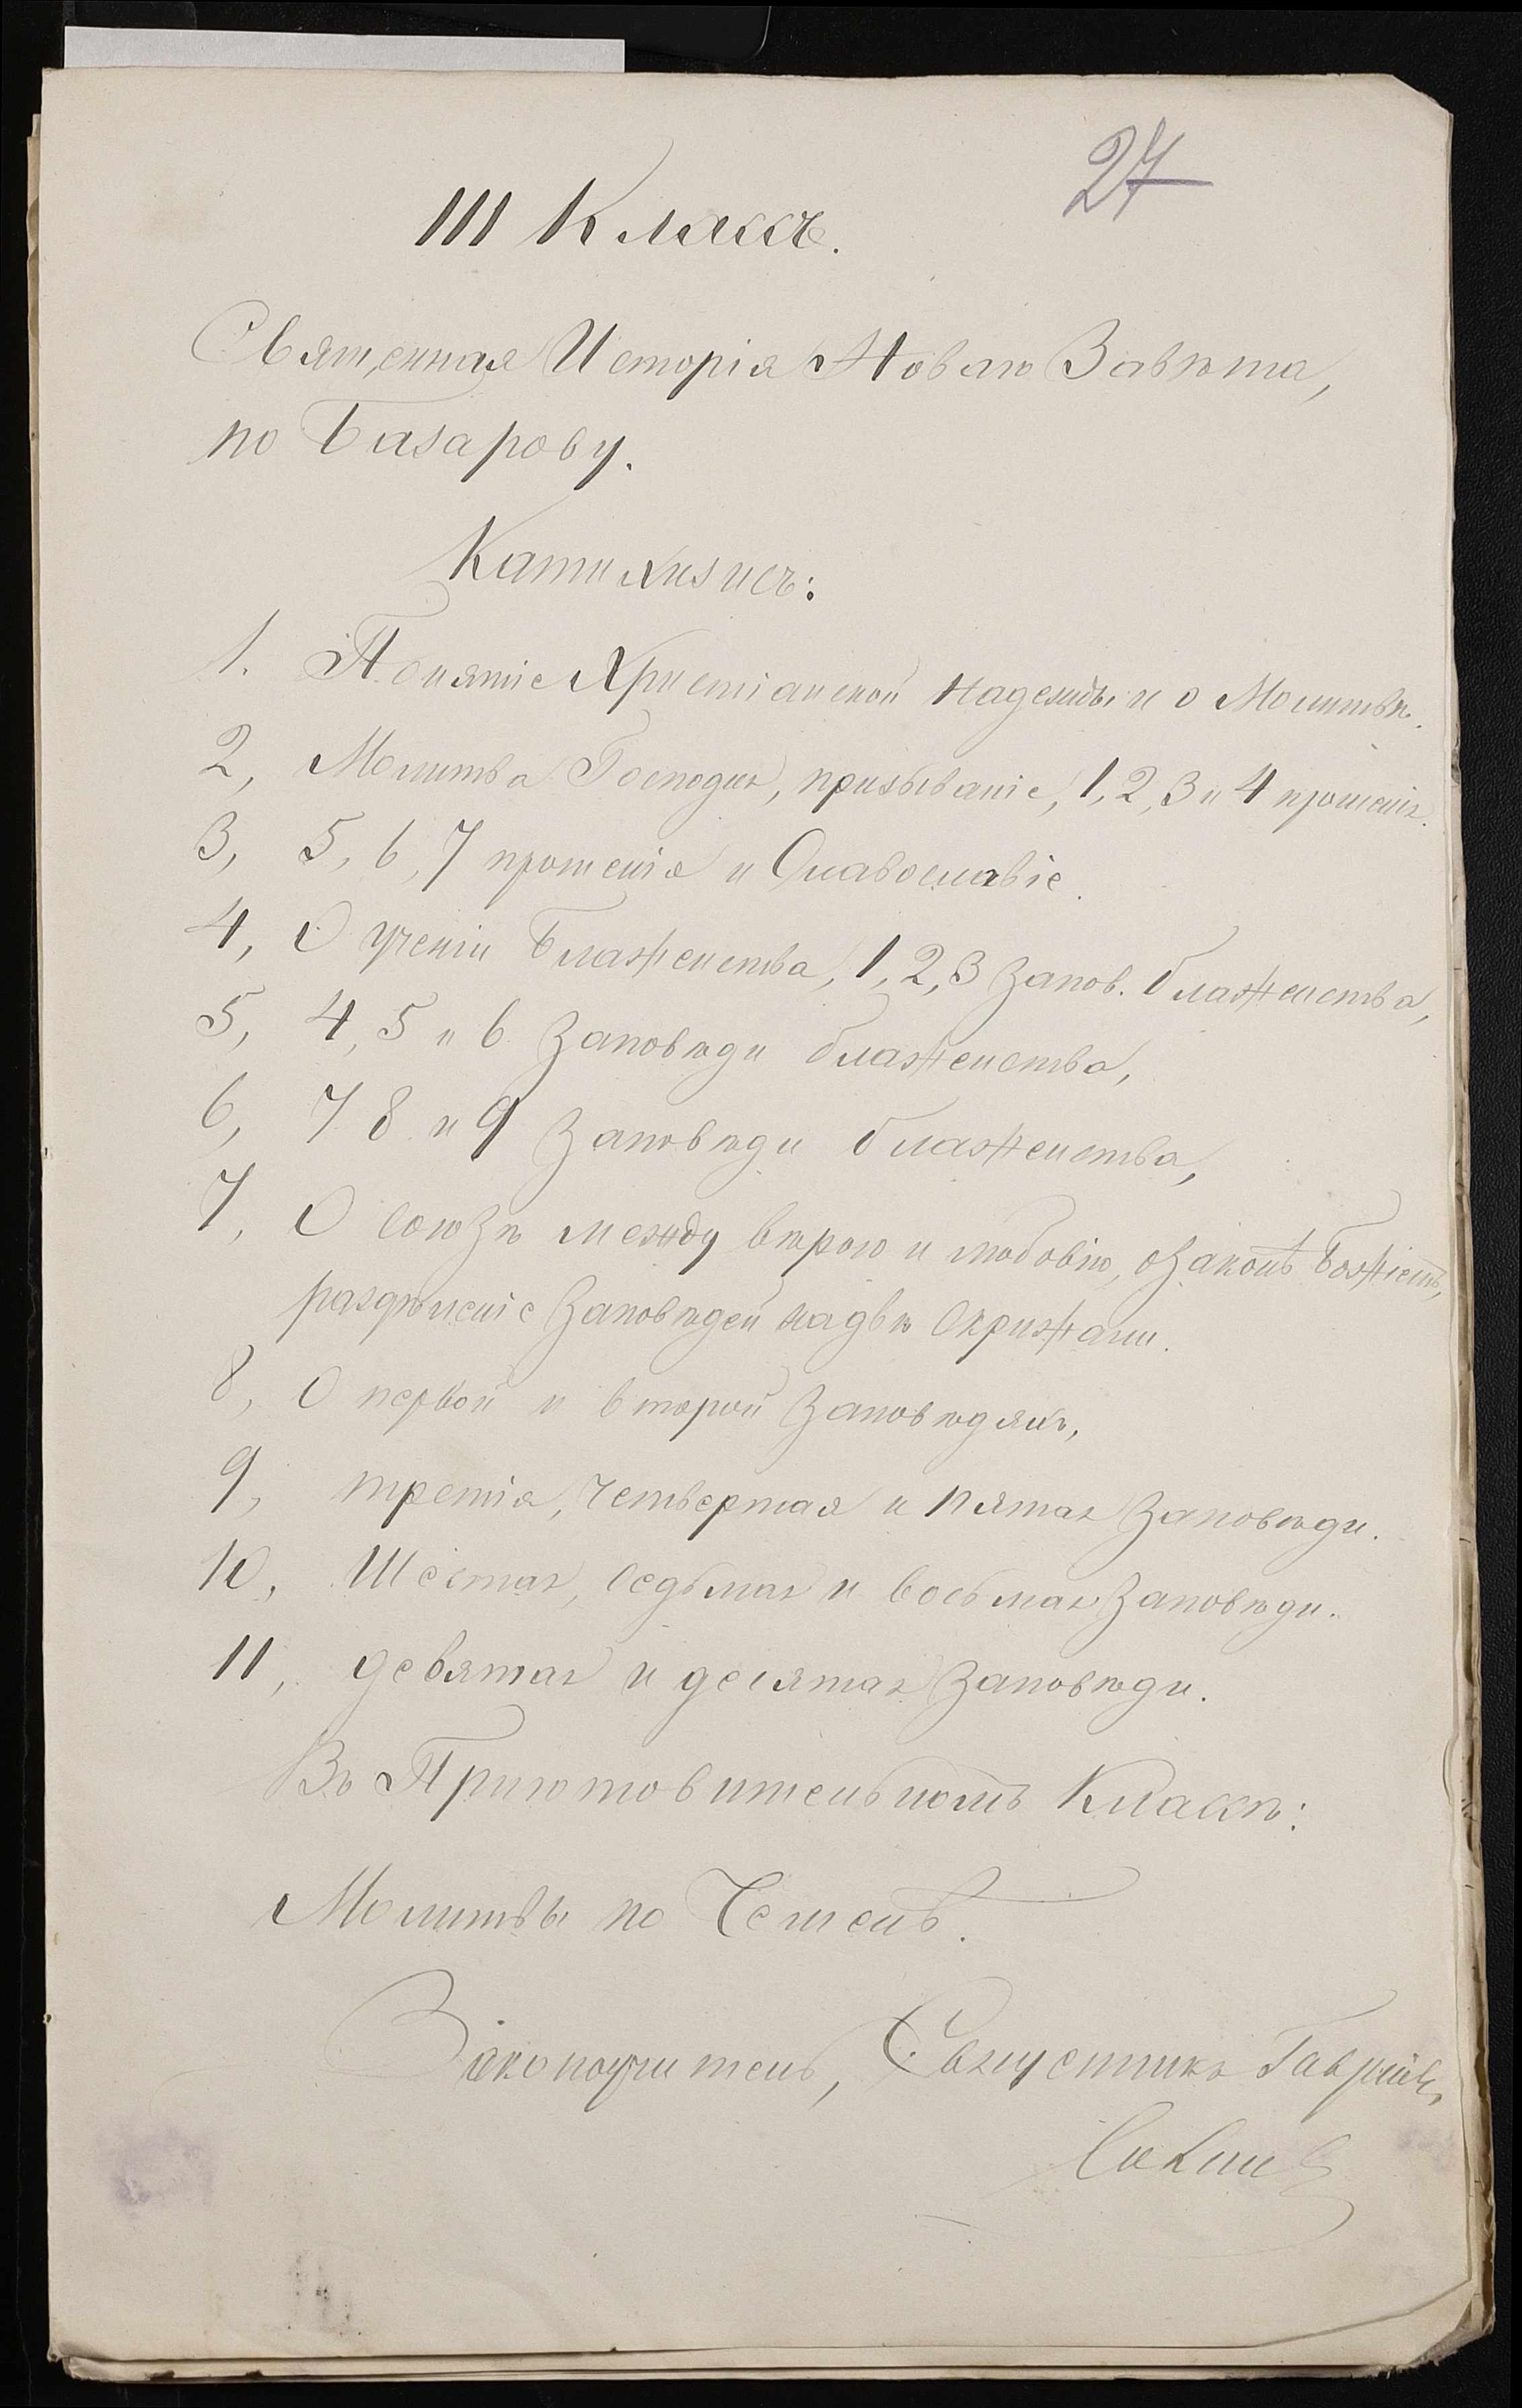 27
III Классъ.
Священная Исторія Новаго Завѣта,
по Базарову.
Катихизисъ:
1. Понятіе Христіанской надежды и о Молитвѣ.
2, Молитва Господня, призываніе, 1, 2, 3 и 4 прошенія.
3, 5, 6, 7 прошенія и Славословіе.
4, О ученіи Блаженства, 1, 2, 3 Запов. блаженства,
5, 4, 5 и 6 Заповѣди блаженства,
6, 7 8 и 9 Заповѣди блаженства,
7, О союзѣ между вѣрою и любовію, о Законѣ Божіемъ,
раздѣленіе Заповѣдей на двѣ Скрижали.
8, О первой и второй Заповѣдяхъ,
9, третія, четвертая и пятая Заповѣди.
10, Шестая, Седьмая и восьмая Заповѣди.
11, девятая и десятая Заповѣди.
Въ Приготовительномъ Классѣ:
Молитвы по Чешель.
Законоучитель, Священникъ Гавріилъ